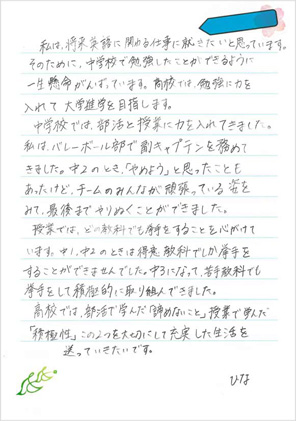 私は、将来英語に関わる仕事に就きたいと思っています。
そのために、中学校で勉強したことができるように
一生懸命がんばっています。高校では、勉強に力を
入れて大学進学を目指します。
中学校では、部活と授業に力を入れてきました。
私は、バレーボール部で副キャプテンを務めて
きました。中2のとき、「やめよう」と思ったことも
あったけど、チームのみんなが頑張っている姿を
みて、最後までやりぬくことができました。
授業では、どの教科でも挙手をすることを心がけて
います。中1、中2のときは得意教科でしか挙手を
することができませんでした。中3になって、苦手教科でも
挙手をして積極的に取り組んできました。
高校では、部活で学んだ「諦めないこと」授業で学んだ
「積極性」この2つを大切にして充実した生活を
送っていきたいです。
ひな